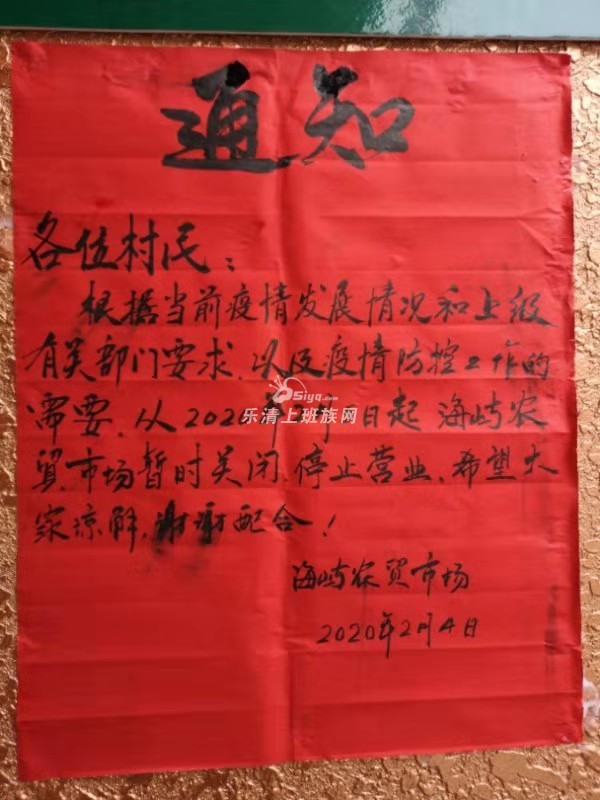 通知
各位村民：
根据当前疫情发展情况和上级
有关部门要求，以及疫情防控工作的
需要，从2020年 日起 海屿农
贸市场暂时关闭，停止营业，希望大
家谅解，谢谢配合！
海屿农贸市场
2020年2月4日
5iyq.com
乐清上班族网